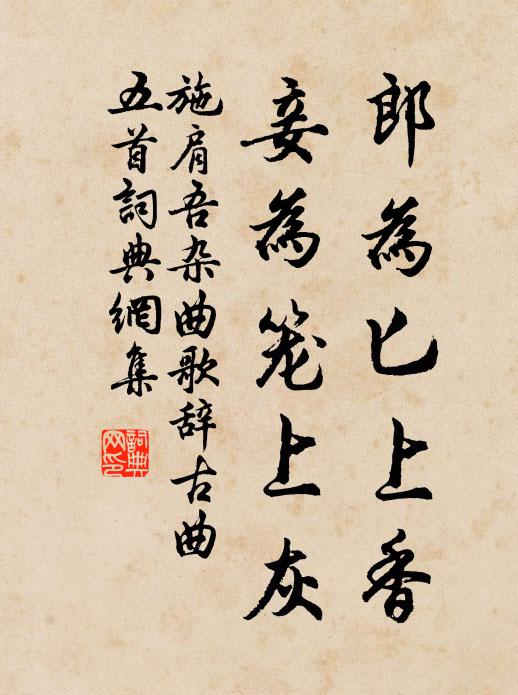 郎為匕上香
妾為笼上灰
施肩吾杂曲歌辞古曲
五首詞典網集
詞典网印